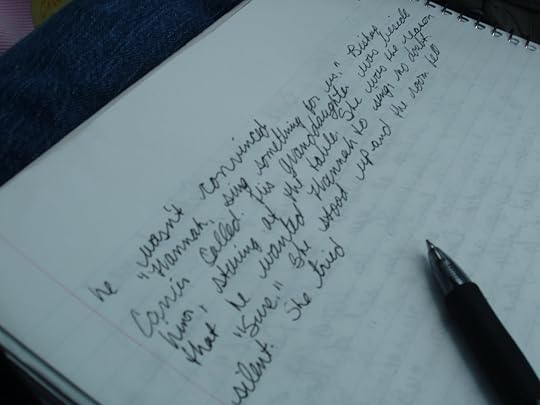 he wasn't convinced
"Hannah, sing something for us." Bishop
Carrier called. His granddaughter was beside
him, sitting at the table. She was the reason
that he wanted Hannah to sing, no doubt
"Sure." She stood up and the room fell
silent. She tried